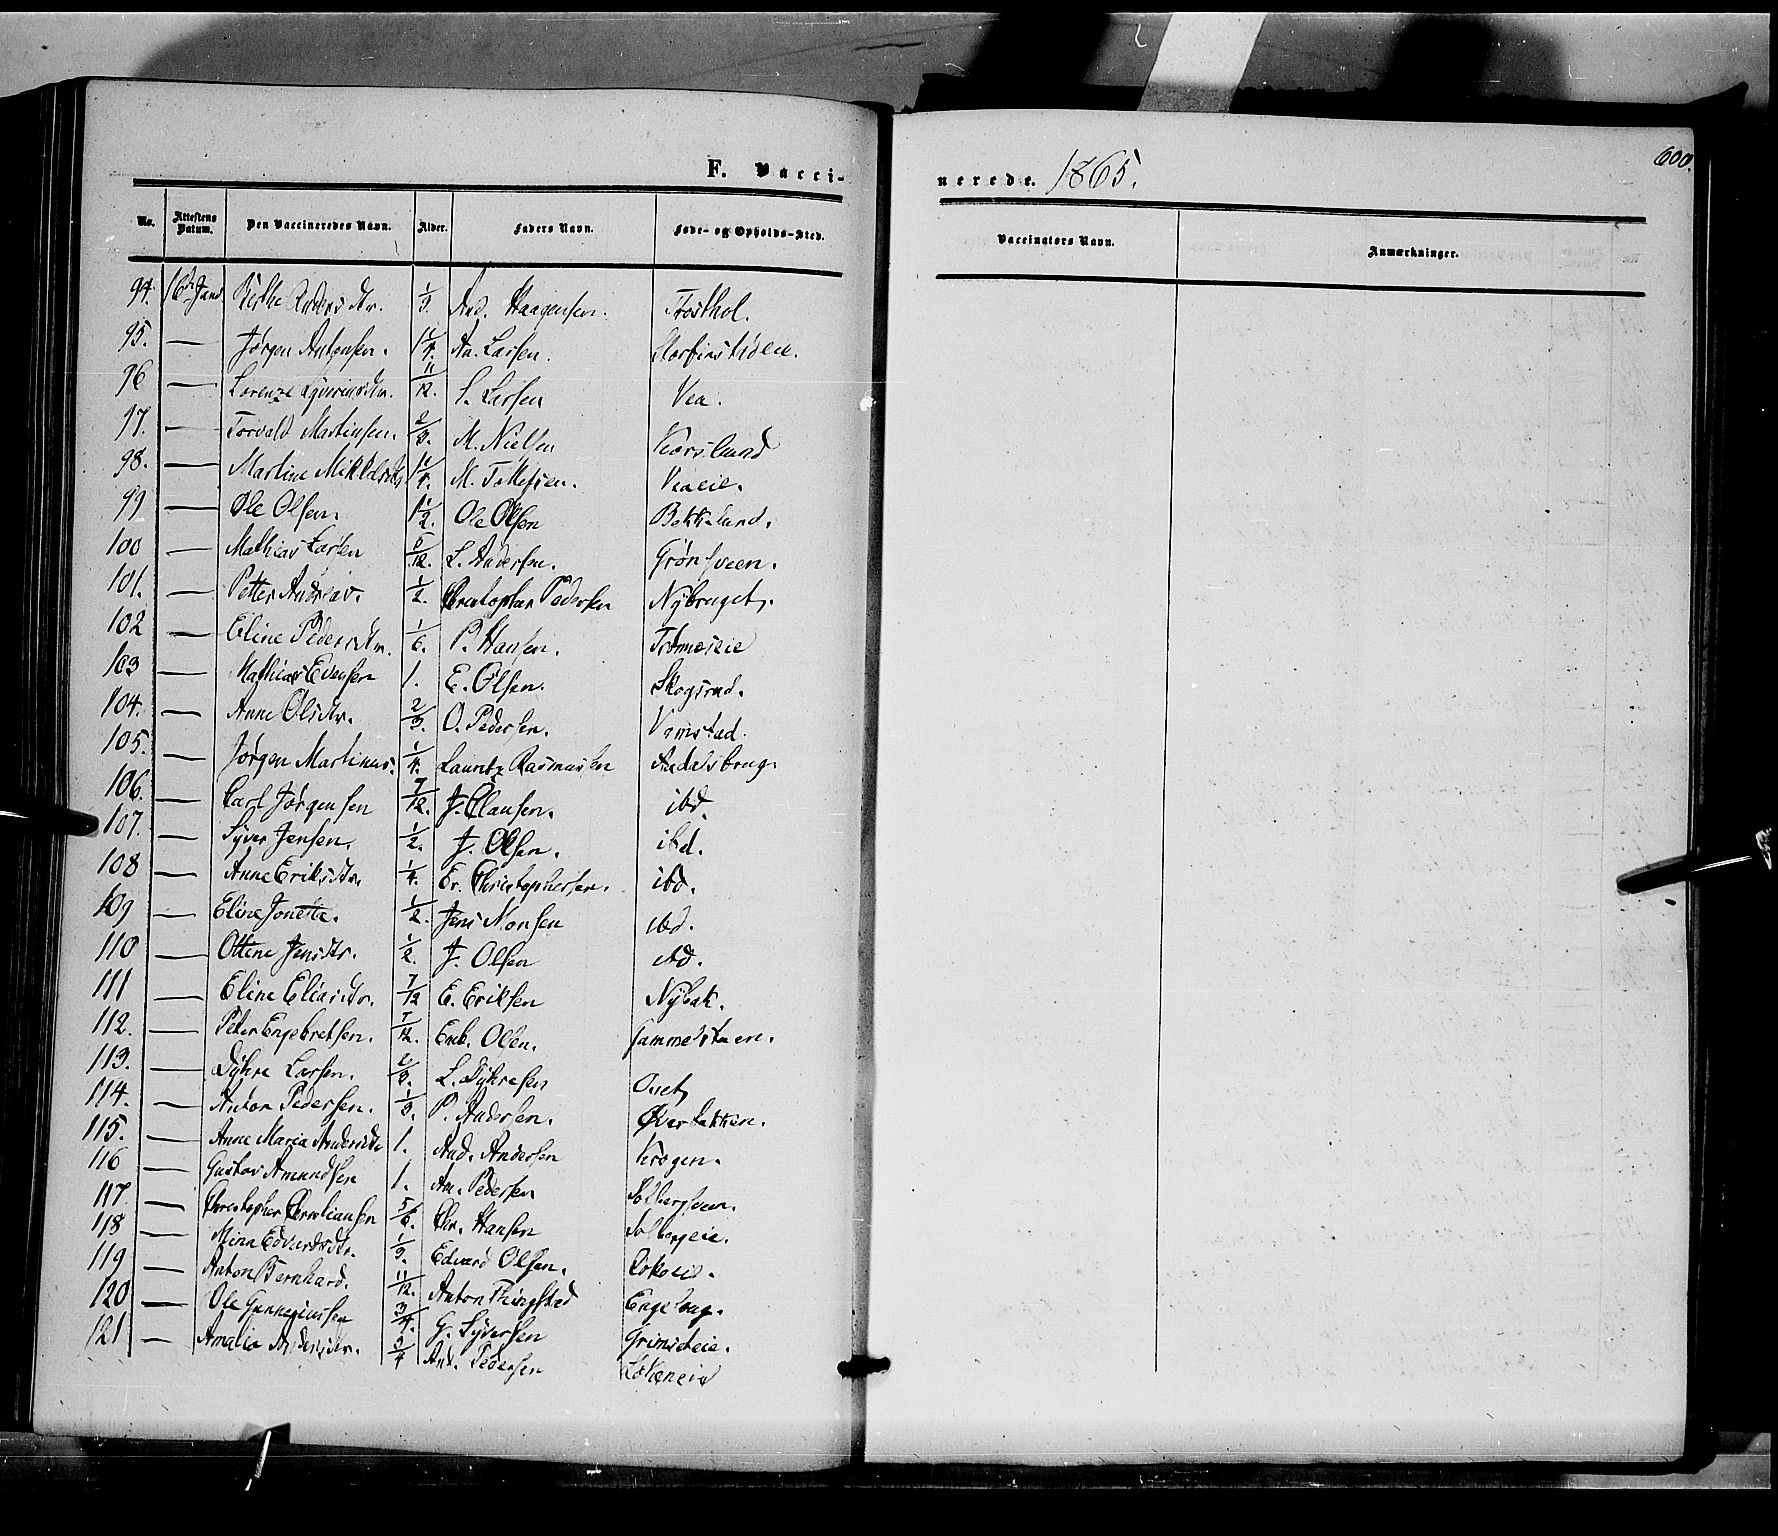 F. Vacci-
nerede. 1865.
600.
No. Attestens Datum. Den Vaccineredes Navn. Alder. Faders Navn. Føde- og Opholds-Sted.
Vaccinators Navn. Anmærkninger.
94. 16de Janr Birthe Andersdtr. 1/3. And. Haagensen.
95. — Jørgen Antonsen. 1 1/4. An. Larsen.
96 — Lorenze Syversdtr. 11/12. S. Larsen Vea.
97. — Torvald Martinsen. 2/3. M. Nielsen Korslund
98. — Martine Mikkelsdtr 1 1/4. M. Tollefsen. Veaeie.
99 — Ole Olsen. 1 1/2. Ole Olsen Bekkelund.
100 — Mathias Larsen 5/12. L. Andersen. Grønsveen.
101. — Petter Andreas. 1/2. Christopher Pedersen Nybruget.
102 — Eline Pedersdtr. 1/6. P. Hansen. Trømmeseie
103 — Mathias Evensen 1. E. Olsen. Skogsrud.
104. — Anne Olsdtr. 2/3. O. Pedersen. Vamstad.
105. — Jørgen Martinus. 1/4. Lauritz Rasmussen Aadalsbrug.
106. — Carl Jørgensen 7/12. J. Clausen. ibd.
107. — Syver Jensen. 1/2. J. Olsen. ibd.
108 — Anne Eriksdtr. 1/4. Er. Christophersen. ibd.
109 — Eline Jonette. 1/2. Jens Monsen ibd.
110 — Ottine Jensdtr. 1/2. J. Olsen ibd.
111 — Eline Eliasdtr. 7/12 E. Eriksen Nybak.
112. — Peter Engebretsen. 7/12. Enb. Olsen. Gammelstuen.
113. — Dyhre Larsen. 2/3. L. Dyhresen Onet
114. — Anton Pedersen. 1/3. P. Andersen. Øverbakken.
115. — Anne Maria Andersdtr 1. And. Andersen Krogen.
116 — Gustav Amundsen 1. Am. Pedersen Solbergsveen.
117. — Christopher Christiansen 5/6. Chr. Hansen Solbergeie.
118 — Mina Edvardsdtr. 1/3. Edvard Olsen. Rokoeie.
119 — Anton Bernhard. 11/12. Anton Thingstad Engebrug.
120 — Ole Gunneriussen 3/4. G. Syversen Grimseteie.
121 — Amalie Andersdtr. 3/4 And. Pedersen Løkeneie